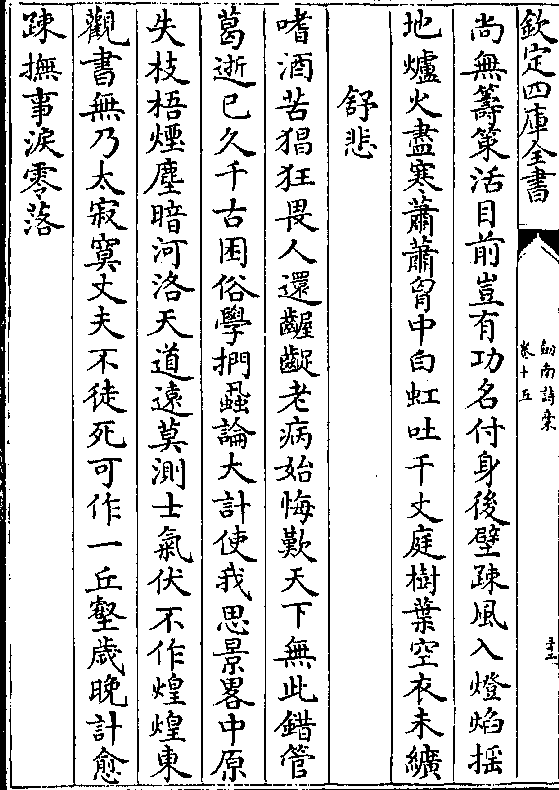 欽定四庫全書
劒南詩稾
卷十五
尚無籌策活目前豈有功名付身後壁踈風入燈焰揺
地爐火盡寒蕭蕭胷中白虹吐千丈庭樹葉空衣未纊
舒悲
嗜酒苦猖狂畏人還齷齪老病始悔歎天下無此錯管
葛逝已久千古困俗學捫蝨論大計使我思景畧中原
失枝梧煙塵暗河洛天道逺莫測士氣伏不作煌煌東
觀書無乃太寂寞丈夫不徒死可作一丘壑歳晚計愈
踈撫事淚零落